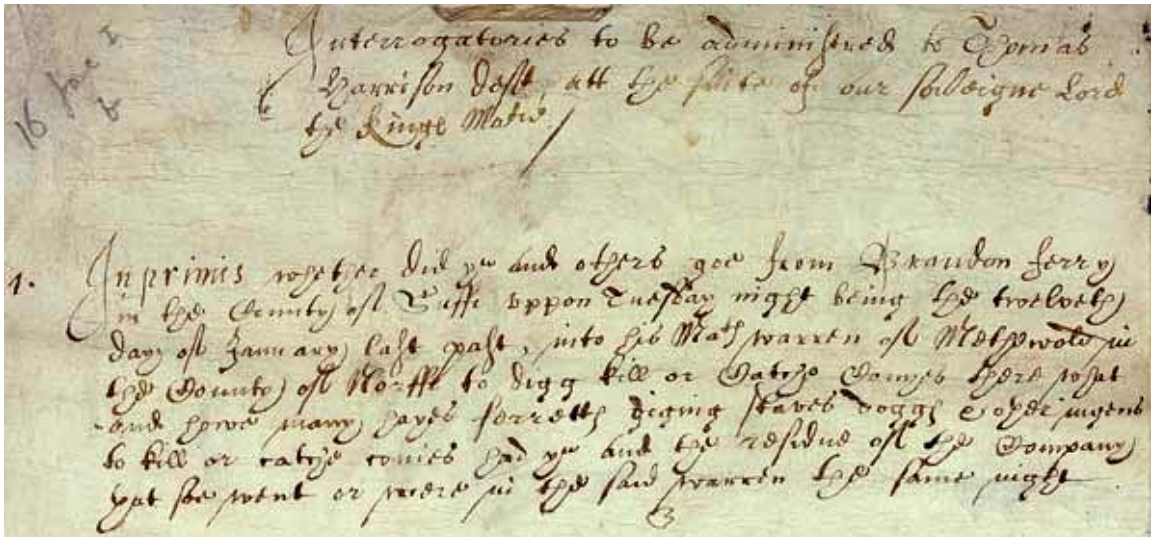 16 Jac I
6
Interrogatories to be administred to Thomas
Harrison deft att the suite of our soveigne Lord
the Kinge Matie
1. Inprimis whether did yu and others goe from Brandon ferry
in the County of Suff uppon Tuesday night being the twelveth
day of January last past, into his Mats warren of Methwold in
the County of Norff to digg kill or Catche Conyes there what
and howe many hayes ferretts diging staves doggs & other ingens
to kill or catche conies had yu and the residue of the Company
yat soe went or were in the said warren the same night